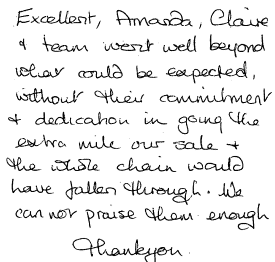 Excellent, Amanda, Claire
& team went well beyond
what could be expected,
without their commitment
+ dedication in going the
extra mile our sale +
the whole chain would
have fallen through. We
can not praise them enough
Thankyou.